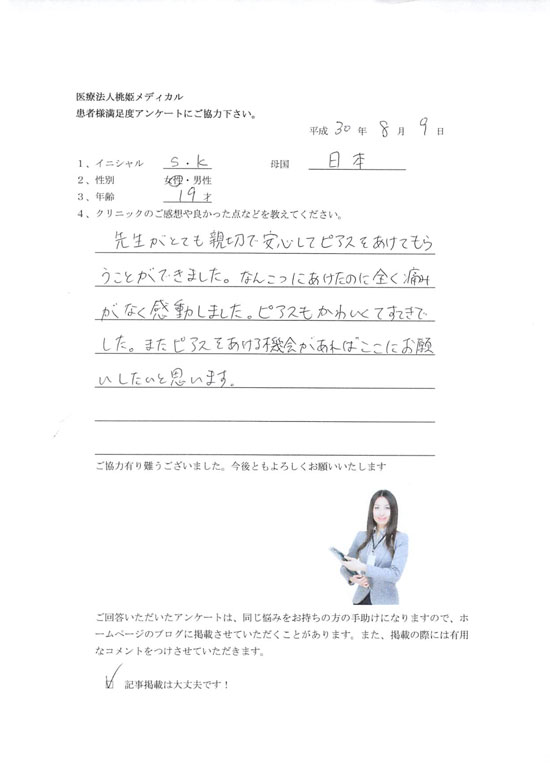 医療法人桃姫メディカル
患者様満足度アンケートにご協力下さい。
平成 30 年 8 月 9 日
1、イニシャル S・K 母国 日本
2、性別 女性・男性
3、年齢 19 才
4、クリニックのご感想や良かった点などを教えてください。
先生がとても親切で安心してピアスをあけてもら
うことができました。なんこつにあけたのに全く痛み
がなく感動しました。ピアスもかわいくてすてきで
した。またピアスをあける機会があればここにお願
いしたいと思います。
ご協力有り難うございました。今後ともよろしくお願いいたします
ご回答いただいたアンケートは、同じ悩みをお持ちの方の手助けになりますので、ホ
ームページのブログに掲載させていただくことがあります。また、掲載の際には有用
なコメントをつけさせていただきます。
☑ 記事掲載は大丈夫です！